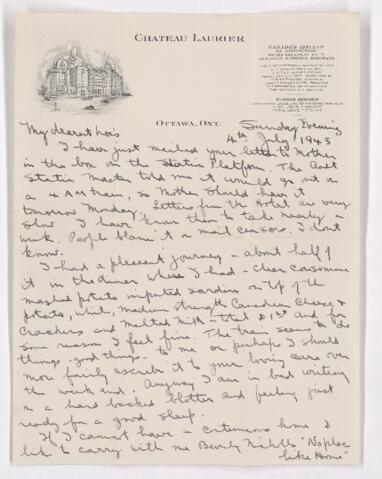 CHATEAU LAURIER
OTTAWA, ONT.
Sunday Evening
4th July 1943
My dearest
I have just mailed your letter to Mother
in the box on the Station Platform. The Asst
Station Master told me it would go out on
a 4 AM train, so Mother should have it
tomorrow Monday. Letters from the Hotel are very
slow. I have known them to take nearly a
week. People blame it on mail censors. I don't
know.
I had a pleasant journey - about half of
it in the diner where I had - clear consomme
mashed potato imported sardines on top of the
potato, white, medium strength Canadian Cheese &
Crackers and Malted Milk - total and for
some reason I feel fine. The train seems to do
things - good things - to me or perhaps I should
more fairly ascribe it to your loving care over
the week end. Anyway I am in bed writing
on a hard backed blotter and feeling just
ready for a good sleep.
If I cannot have a home I
like to carry with me Beverly Nichols "No place
like Home"